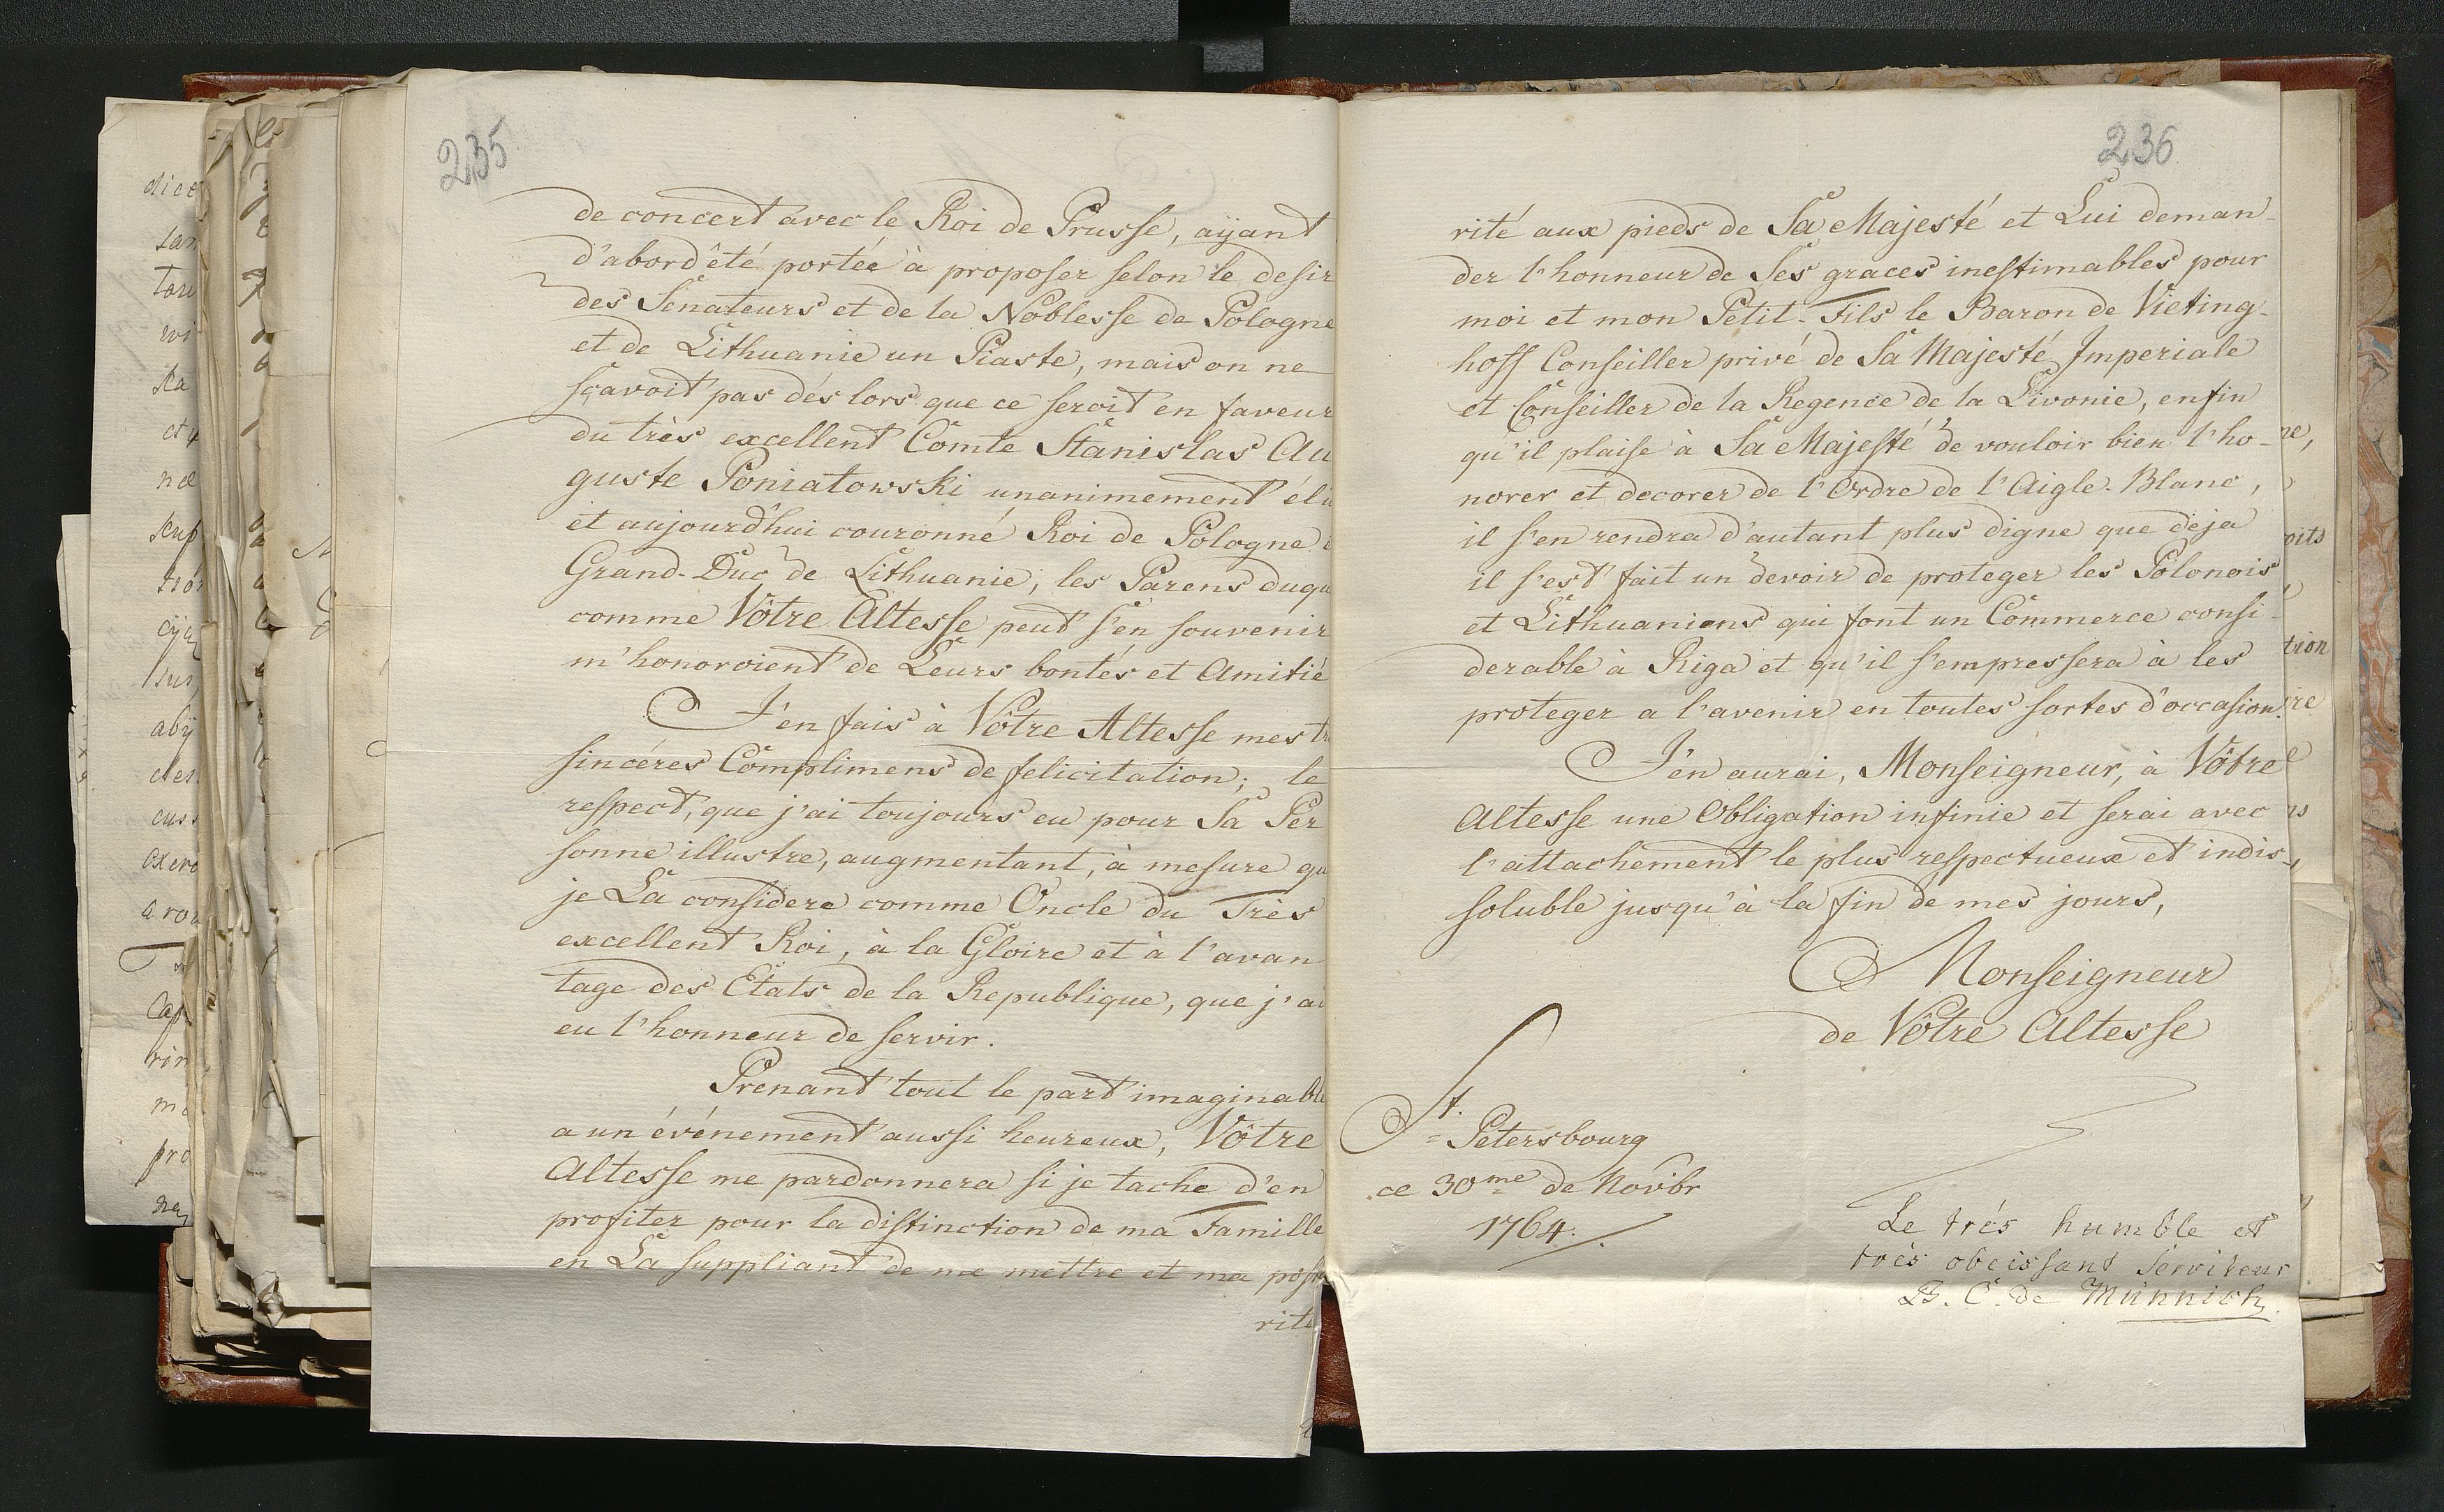 235
de concert avec le Roi de Prusse, aÿant
d'abord été portée à proposer selon le desir
des Senateurs et de la Noblesse de Pologne
et de Lithuanie un Piaste, mais on ne
sçavoit pas dés lors que ce seroit en faveur
du très excellent Comte Stanislas Au
guste Poniatowski unanimement élu
et aujourd'hui couronné Roi de Pologne
Grand-Duc de Lithuanie, les Parens duqu
comme Vôtre Altesse peut s'en souvenir
m'honoroient de Leurs bontés et Amitié
J'en fais à Vôtre Altesse mes tr
sincéres Complimens de felicitation; le
respect, que j'ai toujours eu pour Sa Per
sonne illustre, augmentant, à mesure qu
je La considere comme Oncle du Très
excellent Roi, à la Gloire et à l'avan
tage des Etats de la Republique, que j'ai
eu l'honneur de servir.
Prenant tout le part imaginable
a un événement aussi heureux, Vôtre
Altesse me pardonnera si je tache d'en
profiter pour la distinction de ma Famille
en La suppliant de me mettre et ma poste
rité
236
rité aux pieds de Sa Majesté et Lui deman-
der l'honneur de Ses graces inestimables pour
moi et mon Petit-Fils le Baron de Vieting-
hoff Conseiller privé de Sa Majesté Imperiale
et Conseiller de la Regence de la Livonie, enfin
qu'il plaise à Sa Majesté de vouloir bien l'ho-
norer et decorer de l'Ordre de l'Aigle-Blanc,
il s'en rendra d'autant plus digne que deja
il s'est fait un devoir de proteger les Polonois
et Lithuaniens qui font un Commerce consi-
derable à Riga et qu'il s'empressera à les
proteger a l'avenir en toutes sortes d'occasion.
J'en aurai, Monseigneur, à Vôtre
Altesse une Obligation infinie et serai avec
l'attachement le plus respectueux et indis-
soluble jusqu'à la fin de mes jours,
Monseigneur
de Vôtre Altesse
St. Petersbourg
ce 30me de Novbr
1764.
Le trés humble et
très obeissant Serviteur
B. C. de Münnich